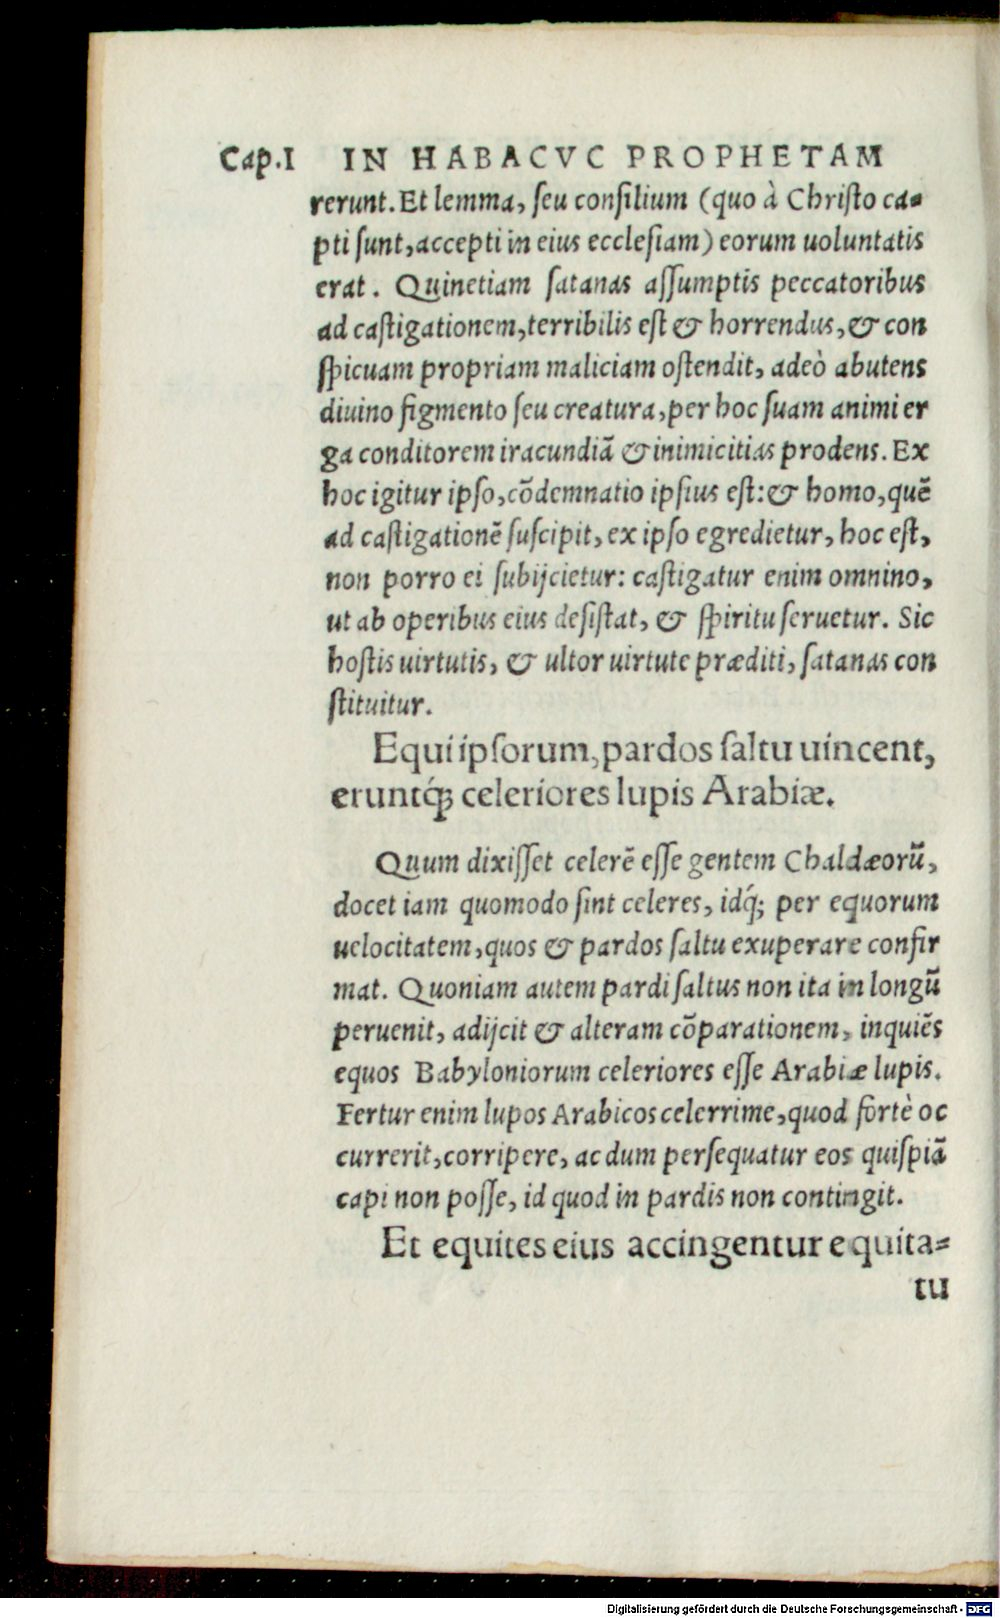 Cap.I IN HABACVC PROPHETAM
rerunt. Et lemma, seu consilium (quo à Christo ca-
pti sunt, accepti in eius ecclesiam) eorum uoluntatis
erat. Quinetiam satanas assumptis peccatoribus
ad castigationem, terribilis est & horrendus, & con
spicuam propriam maliciam ostendit, adeò abutens
diuino figmento seu creatura, per hoc suam animi er
ga conditorem iracundiā & inimicitias prodens. Ex
hoc igitur ipso, cōdemnatio ipsius est: & homo, quē
ad castigationē suscipit, ex ipso egredietur, hoc est,
non porro ei subijcietur: castigatur enim omnino,
ut ab operibus eius desistat, & spiritu seruetur. Sic
hostis uirtutis, & ultor uirtute præditi, satanas con
stituitur.
Equi ipsorum, pardos saltu uincent,
eruntq́; celeriores lupis Arabiæ.
Quum dixisset celerē esse gentem Chaldæorū,
docet iam quomodo sint celeres, idq́; per equorum
uelocitatem, quos & pardos saltu exuperare confir
mat. Quoniam autem pardi saltus non ita in longū
peruenit, adijcit & alteram cōparationem, inquiēs
equos Babyloniorum celeriores esse Arabiæ lupis.
Fertur enim lupos Arabicos celerrime, quod fortè oc
currerit, corripere, ac dum persequatur eos quispiā
capi non posse, id quod in pardis non contingit.
Et equites eius accingentur equita-
tu
Digitalisierung gefördert durch die Deutsche Forschungsgemeinschaft - DFG